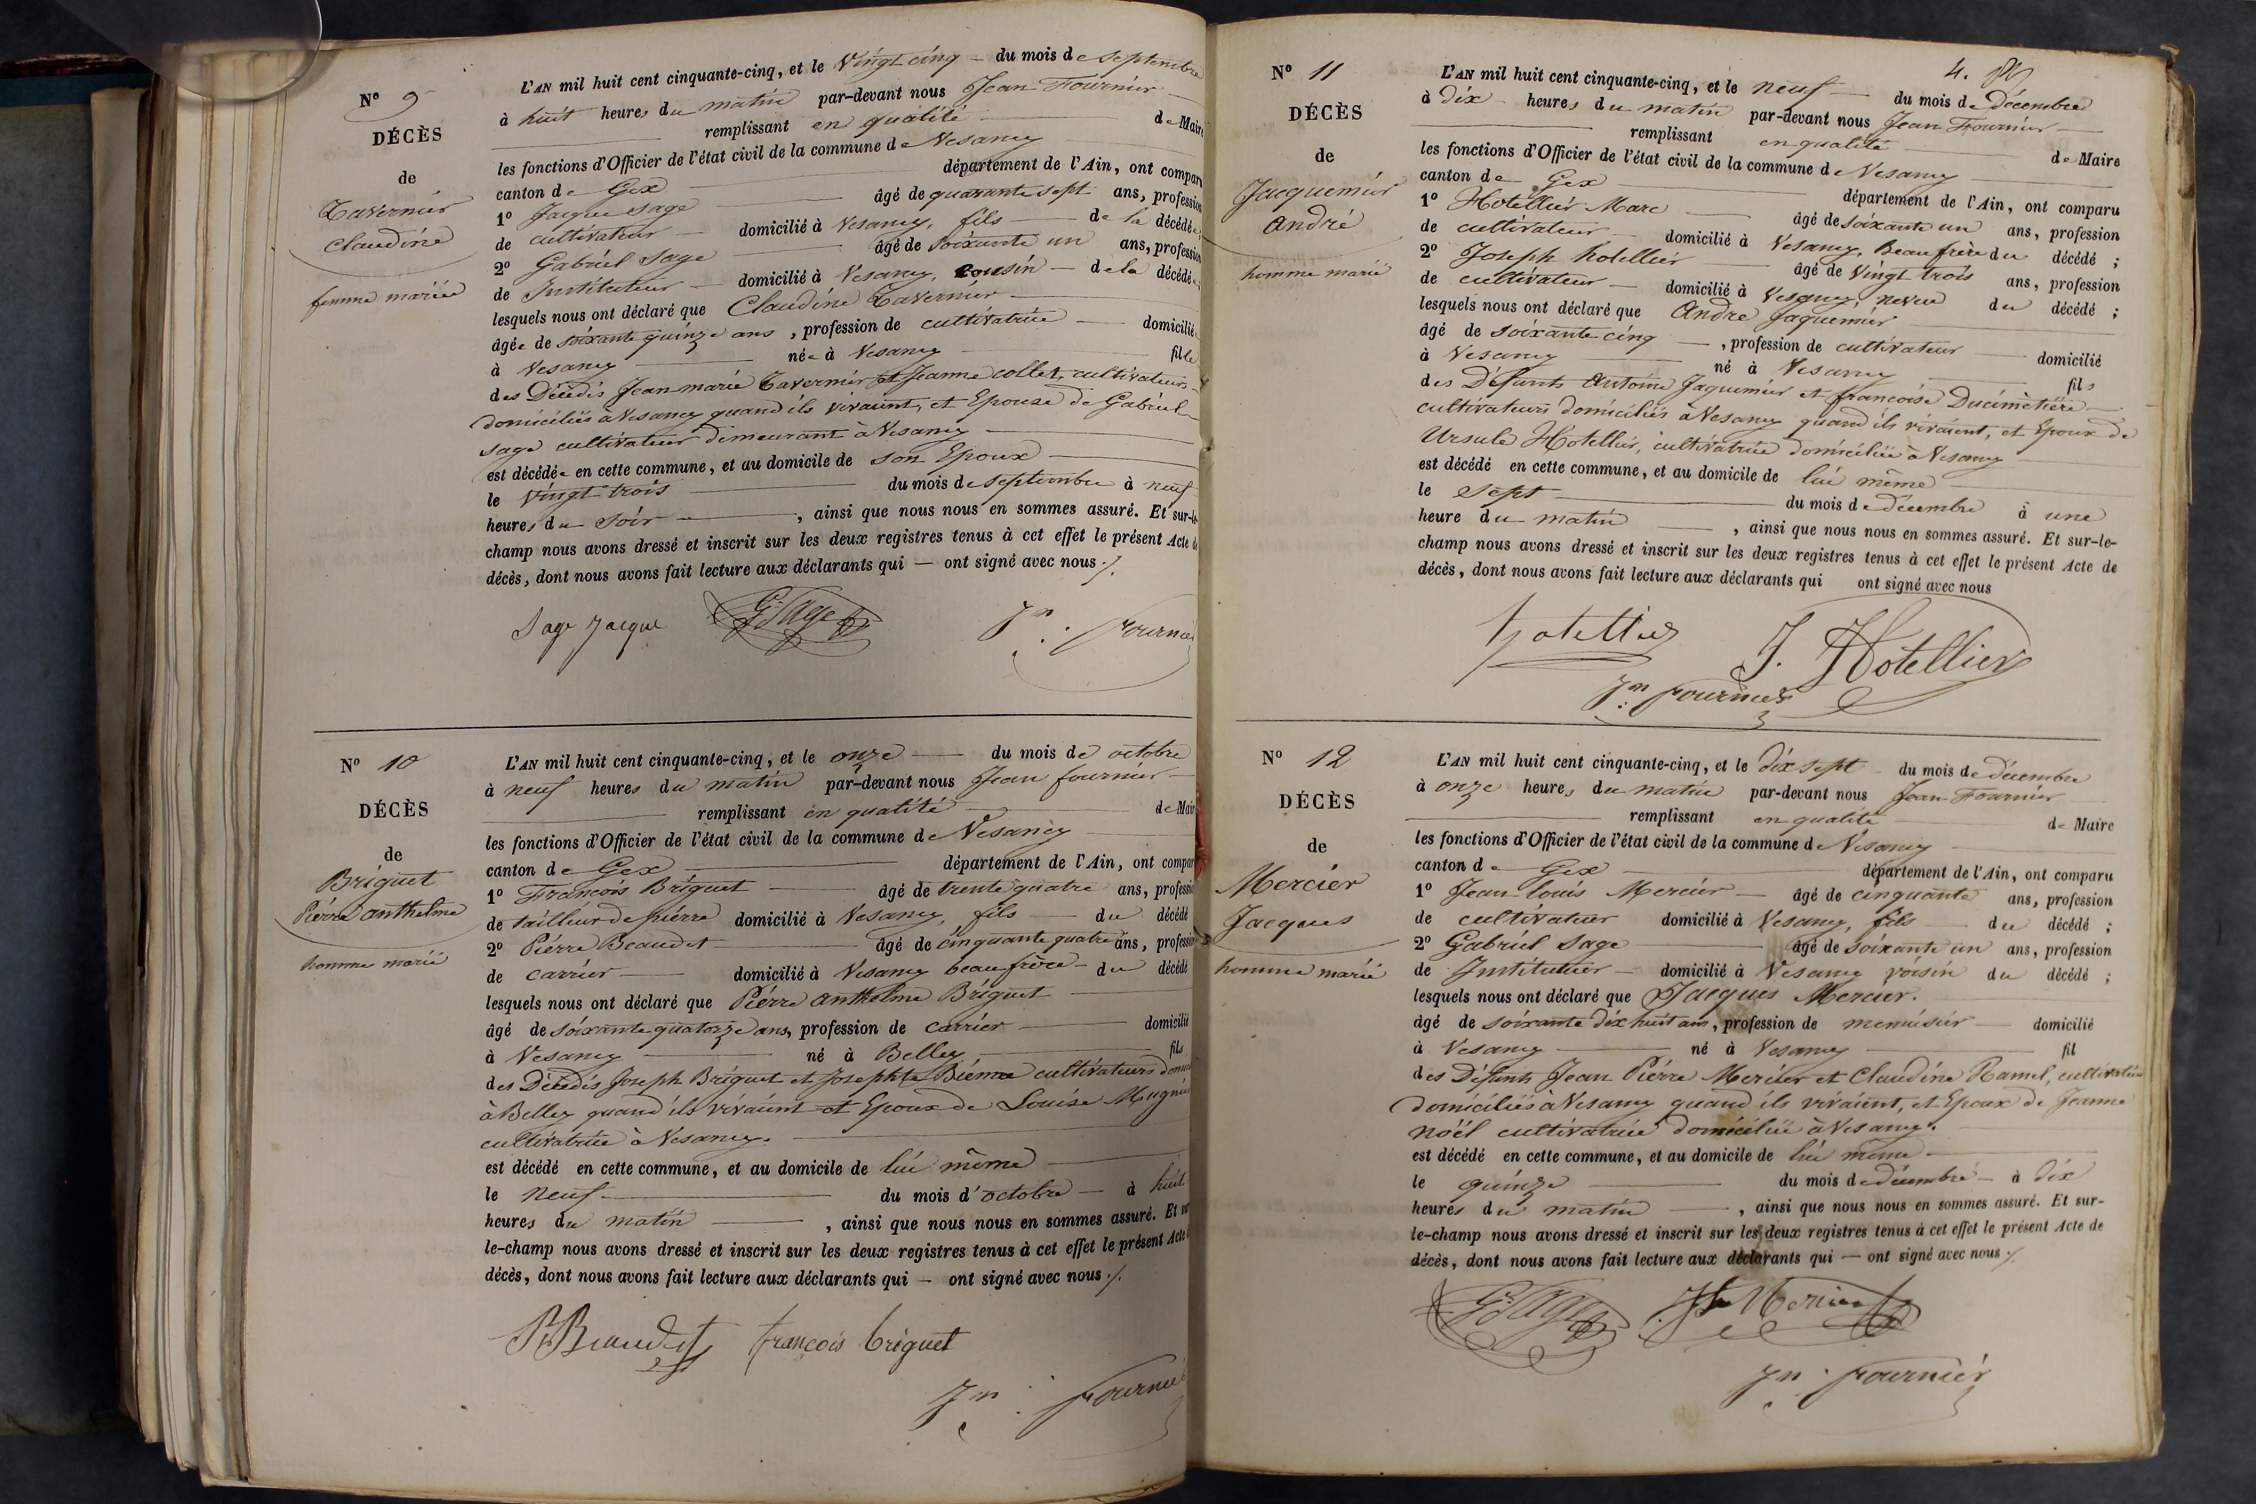 N° 9
DÉCÈS
de
Tavernier
Claudine
femme mariée
L'AN mil huit cent cinquante-cinq, et le Vingt cinq — du mois de septembre
à huit heures du matin par-devant nous Jean Fournier
remplissant en qualité de Maire
les fonctions d'Officier de l'état civil de la commune de Vesancy
canton de Gex département de l'Ain, ont comparu
1° Jacques Sage âgé de quarante sept ans, profession
de cultivateur domicilié à Vesancy, fils de la décédée ;
2° Gabriel Sage âgé de soixante un ans, profession
de Instituteur domicilié à Vesancy, cousin de la décédée ;
lesquels nous ont déclaré que Claudine Tavernier
âgée de soixante quinze ans, profession de cultivatrice domiciliée
à Vesancy née à Vesancy fille
des Décédés Jean marie Tavernier et Jeanne collet, cultivateurs
domiciliés à Vesancy quand ils vivaient, et Epouse de Gabriel
Sage cultivateur demeurant à Vesancy
est décédée en cette commune, et au domicile de son Epoux
le vingt trois du mois de septembre à neuf
heures du soir, ainsi que nous nous en sommes assuré. Et sur-le-
champ nous avons dressé et inscrit sur les deux registres tenus à cet effet le présent Acte de
décès, dont nous avons fait lecture aux déclarants qui — ont signé avec nous ./.
Sage Jacque G. Sage Jn. fournier
N° 10
DÉCÈS
de
Briguet
Pierre anthelme
homme marié
L'AN mil huit cent cinquante-cinq, et le onze — du mois de octobre
à neuf heures du matin par-devant nous Jean fournier
remplissant en qualité de Maire
les fonctions d'Officier de l'état civil de la commune de Vesancy
canton de Gex département de l'Ain, ont comparu
1° François Briguet âgé de trente quatre ans, profession
de tailleur de pierre domicilié à Vesancy, fils du décédé
2° Pierre Beaudet âgé de cinquante quatre ans, profession
de carrier domicilié à Vesancy beau frère du décédé
lesquels nous ont déclaré que Pierre anthelme Briguet
âgé de soixante quatorze ans, profession de carrier domicilié
à Vesancy né à Belley fils
des Décédés Joseph Briguet et Josephte cultivateurs
à Belley quand ils vivaient et Epoux de Louise Mugnier
cultivatrice à Vesancy.
est décédé en cette commune, et au domicile de lui même
le neuf du mois d'octobre à huit
heures du matin, ainsi que nous nous en sommes assuré. Et sur-
le-champ nous avons dressé et inscrit sur les deux registres tenus à cet effet le présent Acte de
décès, dont nous avons fait lecture aux déclarants qui — ont signé avec nous ./.
P. Beaudet françois briguet
Jn. fournier
4.
N° 11
DÉCÈS
de
Jacquemier
André
homme marié
L'AN mil huit cent cinquante-cinq, et le neuf du mois de Décembre
à dix heures du matin par-devant nous Jean Fournier
remplissant en qualité de Maire
les fonctions d'Officier de l'état civil de la commune de Vesancy
canton de Gex département de l'Ain, ont comparu
1° Hotellier Marc âgé de soixante un ans, profession
de cultivateur domicilié à Vesancy, Beau frère du décédé ;
2° Joseph hotellier âgé de vingt trois ans, profession
de cultivateur domicilié à Vesancy, neveu du décédé ;
lesquels nous ont déclaré que André Jaquemier
âgé de soixante cinq, profession de cultivateur domicilié
à Vesancy né à Vesancy fils
des Défunts Antoine Jaquemier et françoise Ducimetière
cultivateurs domiciliés à Vesancy quand ils vivaient, et Epoux de
Ursule Hotellier, cultivatrice domiciliée à Vesancy
est décédé en cette commune, et au domicile de lui même
le Sept du mois de décembre à une
heure du matin, ainsi que nous nous en sommes assuré. Et sur-le-
champ nous avons dressé et inscrit sur les deux registres tenus à cet effet le présent Acte de
décès, dont nous avons fait lecture aux déclarants qui ont signé avec nous
hotellier J. Hotellier
Jn. fournier
N° 12
DÉCÈS
de
Mercier
Jacques
homme marié
L'AN mil huit cent cinquante-cinq, et le dix sept du mois de décembre
à onze heures du matin par-devant nous Jean Fournier
remplissant en qualité de Maire
les fonctions d'Officier de l'état civil de la commune de Vesancy
canton de Gex département de l'Ain, ont comparu
1° Jean louis Mercier âgé de cinquante ans, profession
de cultivateur domicilié à Vesancy, fils du décédé ;
2° Gabriel Sage âgé de soixante un ans, profession
de Instituteur domicilié à Vesancy voisin du décédé ;
lesquels nous ont déclaré que Jacques Mercier.
âgé de soixante dix huit ans, profession de menuisier domicilié
à Vesancy né à Vesancy fil
des Défunts Jean Pierre Mercier et Claudine Ramel, cultivateurs
domiciliés à Vesancy quand ils vivaient, et Epoux de Jeanne
noël cultivatrice domiciliée à Vesancy.
est décédé en cette commune, et au domicile de lui même
le quinze du mois de décembre à dix
heures du matin, ainsi que nous nous en sommes assuré. Et sur-
le-champ nous avons dressé et inscrit sur les deux registres tenus à cet effet le présent Acte de
décès, dont nous avons fait lecture aux déclarants qui — ont signé avec nous ./.
G. Sage Mercier
Jn. fournier